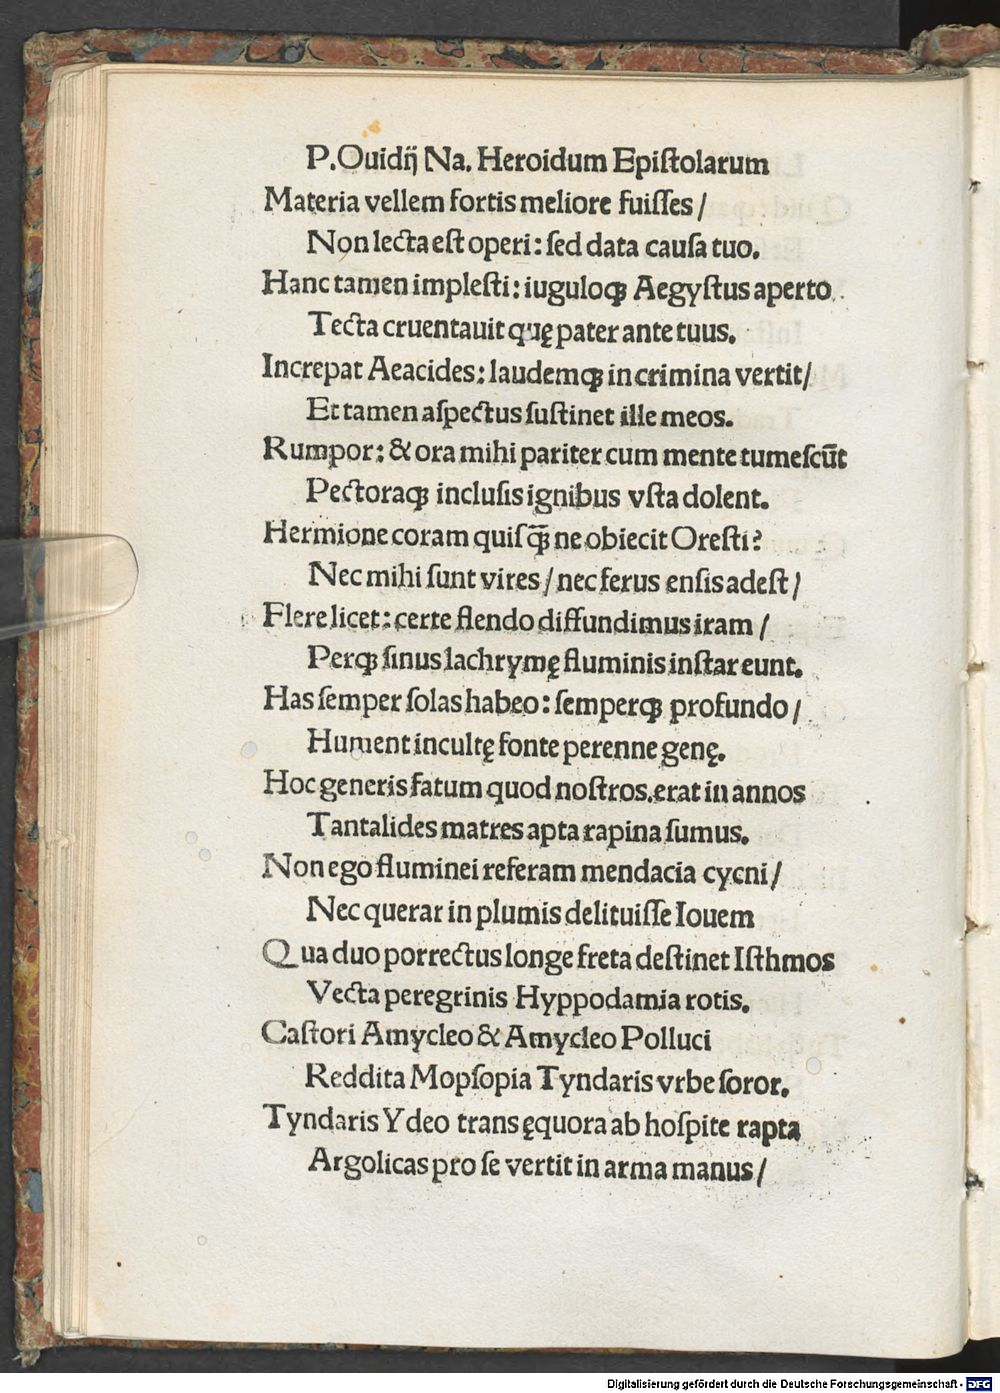 P.Ouidij Na. Heroidum Epiſtolarum
Materia vellem fortis meliore fuiſſes /
Non lecta eſt operi: ſed data cauſa tuo.
Hanc tamen impleſti: iuguloqꝫ Aegyſtus aperto.
Tecta cruentauit quę pater ante tuus.
Increpat Aeacides: laudemqꝫ in crimina vertit/
Et tamen aſpectus ſuſtinet ille meos.
Rumpor: & ora mihi pariter cum mente tumeſcūt
Pectoraqꝫ incluſis ignibus vſta dolent.
Hermione coram quiſq̄ꝫ ne obiecit Oreſti?
Nec mihi ſunt vires / nec ferus enſis adeſt /
Flere licet: certe flendo diffundimus iram /
Perqꝫ ſinus lachrymę fluminis inſtar eunt.
Has ſemper ſolas habeo: ſemperqꝫ profundo /
Hument incultę fonte perenne genę.
Hoc generis fatum quod noſtros.erat in annos
Tantalides matres apta rapina ſumus.
Non ego fluminei referam mendacia cycni /
Nec querar in plumis delituiſſe Iouem
Qua duo porrectus longe freta deſtinet Iſthmos
Vecta peregrinis Hyppodamia rotis.
Caſtori Amycleo & Amycleo Polluci
Reddita Mopſopia Tyndaris vrbe ſoror.
Tyndaris Ydeo trans ęquora ab hoſpite rapta
Argolicas pro ſe vertit in arma manus /
Digitalisierung gefördert durch die Deutsche Forschungsgemeinschaft - DFG